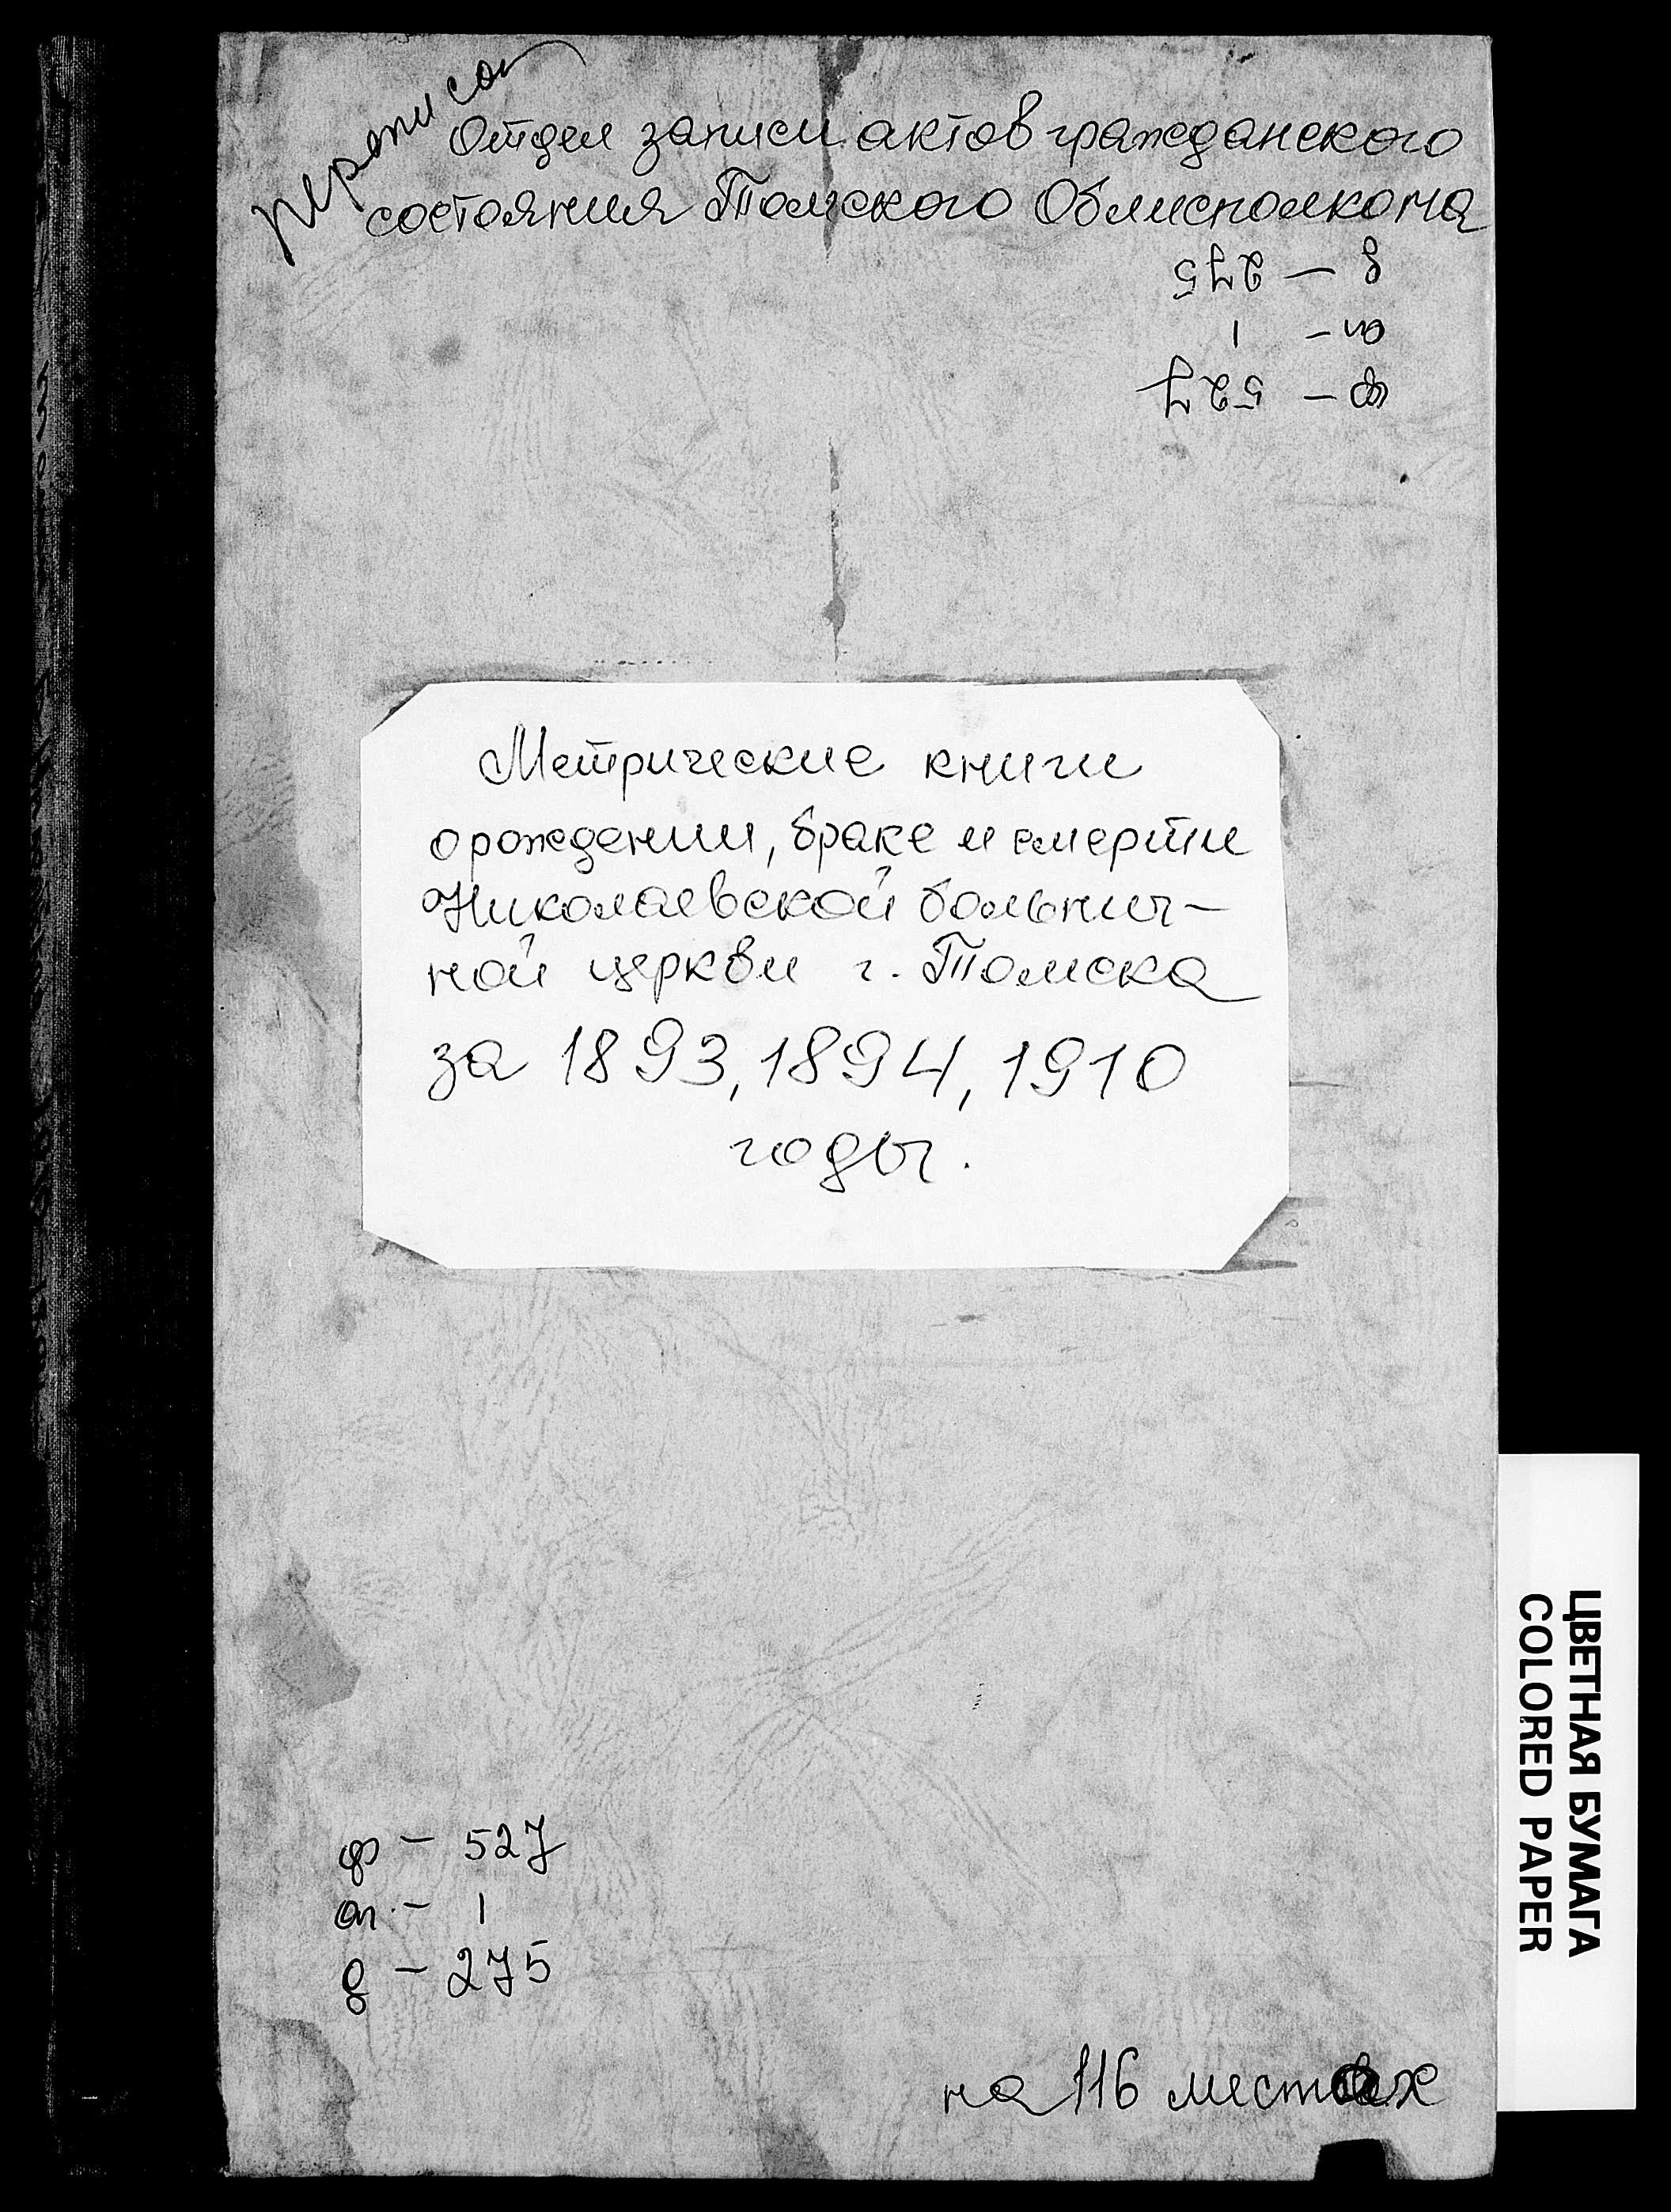 переписан
Отдел записи актов гражданского
состояния Томского Облисполкома
д - 275
оп - 1
ф - 527
Метрические книги
о рождении, браке и смерти
Николаевской больнич-
ной церкви г. Томска
за 1893, 1894, 1910
годы.
ф - 527
оп. - 1
д - 275
на 116 листах
ЦВЕТНАЯ БУМАГА
COLORED PAPER